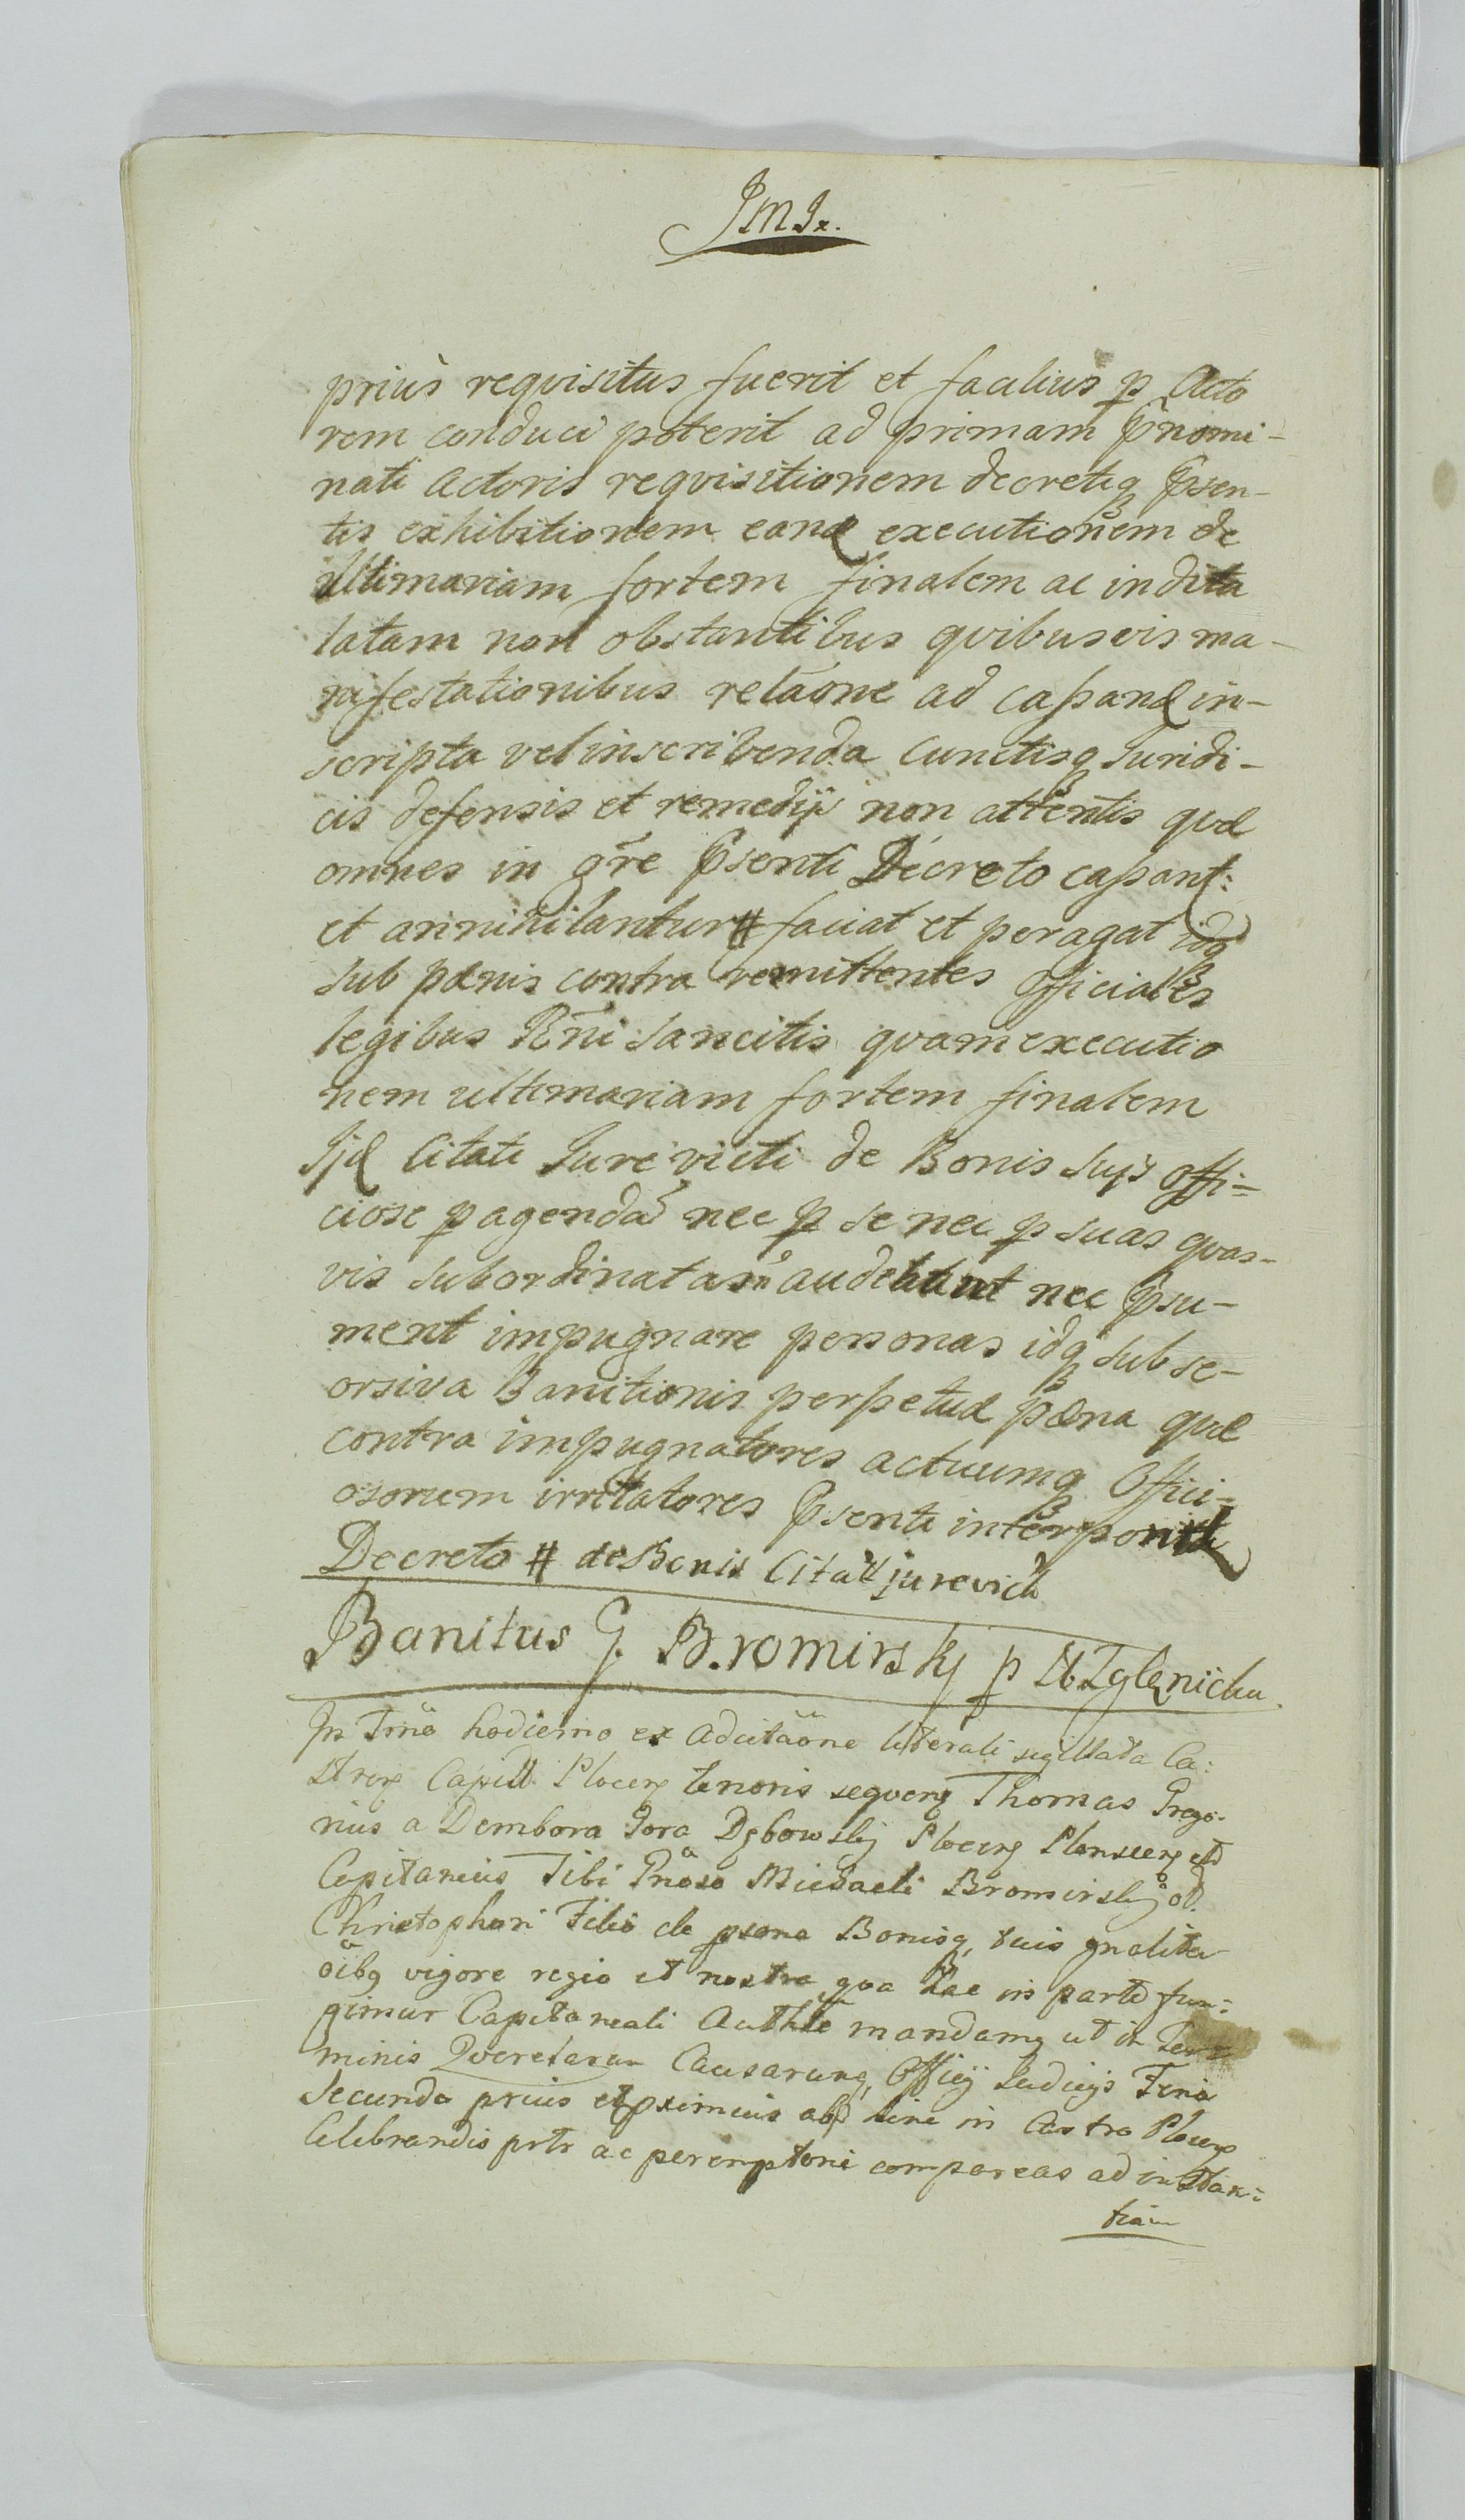 prius requisitus fuerit et facilius p Acto
rem conduci poterit ad primam Pnomi-
nati Actoris requisitionem decretiq Psen-
tis exhibitionem eand executionem de
ultimariam fortem finalem ac indila
latam non obstantibus quibusvis ma-
nifestationibus relaone ad cassand in-
scripta vel inscribenda cunctisq Juridi-
cis defensis et remedijs non attentis qud
omnes in gre Psenti Decreto cassant:
et annihilantur # faciat et peragat idq
sub pænis contra remittentes Officiales
legibus Rni Sancitis quam executio
nem ultimariam fortem finalem
Citati Jurevicti de Bonis Suis offi-
ciose p agendam nec p se nec p suas quas-
vis subordinatas audebunt nec Psu-
ment impugnare personas idq sub se-
orsiva Banitionis perpetuæ pæna quæ
contra impugnatores actuumq Offici-
osorum irritatores Psenti interponit
Decreto # de Bonis Citati jurevicti
Banitus G. Bromirskj p M Zglenicku
In Tmo hodierno ex Adcitaone literali sigillata Ca:
strens Capitt. Plocens tenoris sequens Thomas Grego-
rius a Dembora Gora Dębowskj Plocens Plonscens etd
Capitaneus Tibi Gnoso Michaeli Bromirskj od.
Christophori Filio de psona Bonisq, tuis gnaliter
oibq vigore regia et nostra qua hac in parte fun:
gimur Capitaneali Autthte mandamq ut in Ter
minis Querelarum Causarumq, Officij Judicijs Feria
Secunda prius et pximius abd hinc in Castro Plocens
Celebrandis prtr ac peremptorie compareas ad instan:
tiam